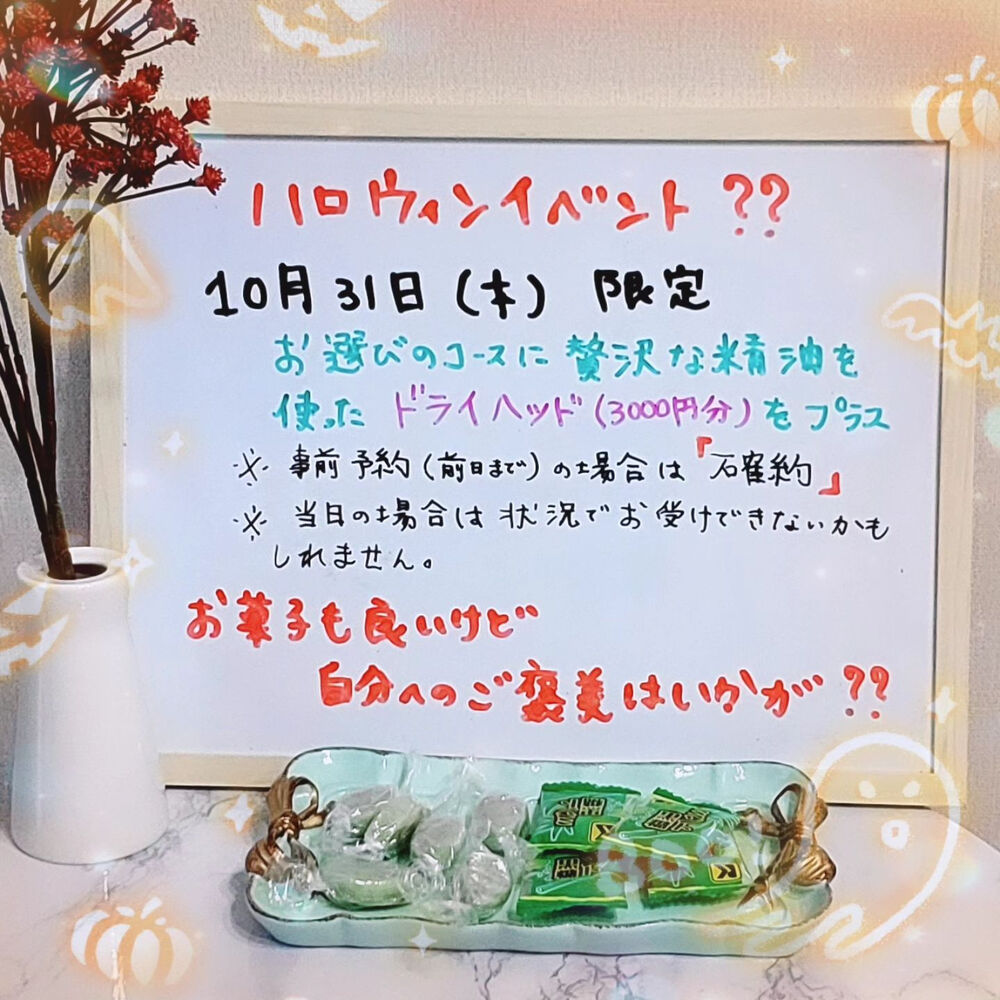 ハロウィンイベント??
10月31日(木) 限定
お選びのコースに贅沢な精油を
使った ドライヘッド(3000円分)をプラス
※ 事前予約(前日まで)の場合は『確約』
※ 当日の場合は状況でお受けできないかも
しれません。
お菓子も良いけど
自分へのご褒美はいかが??
Boo!